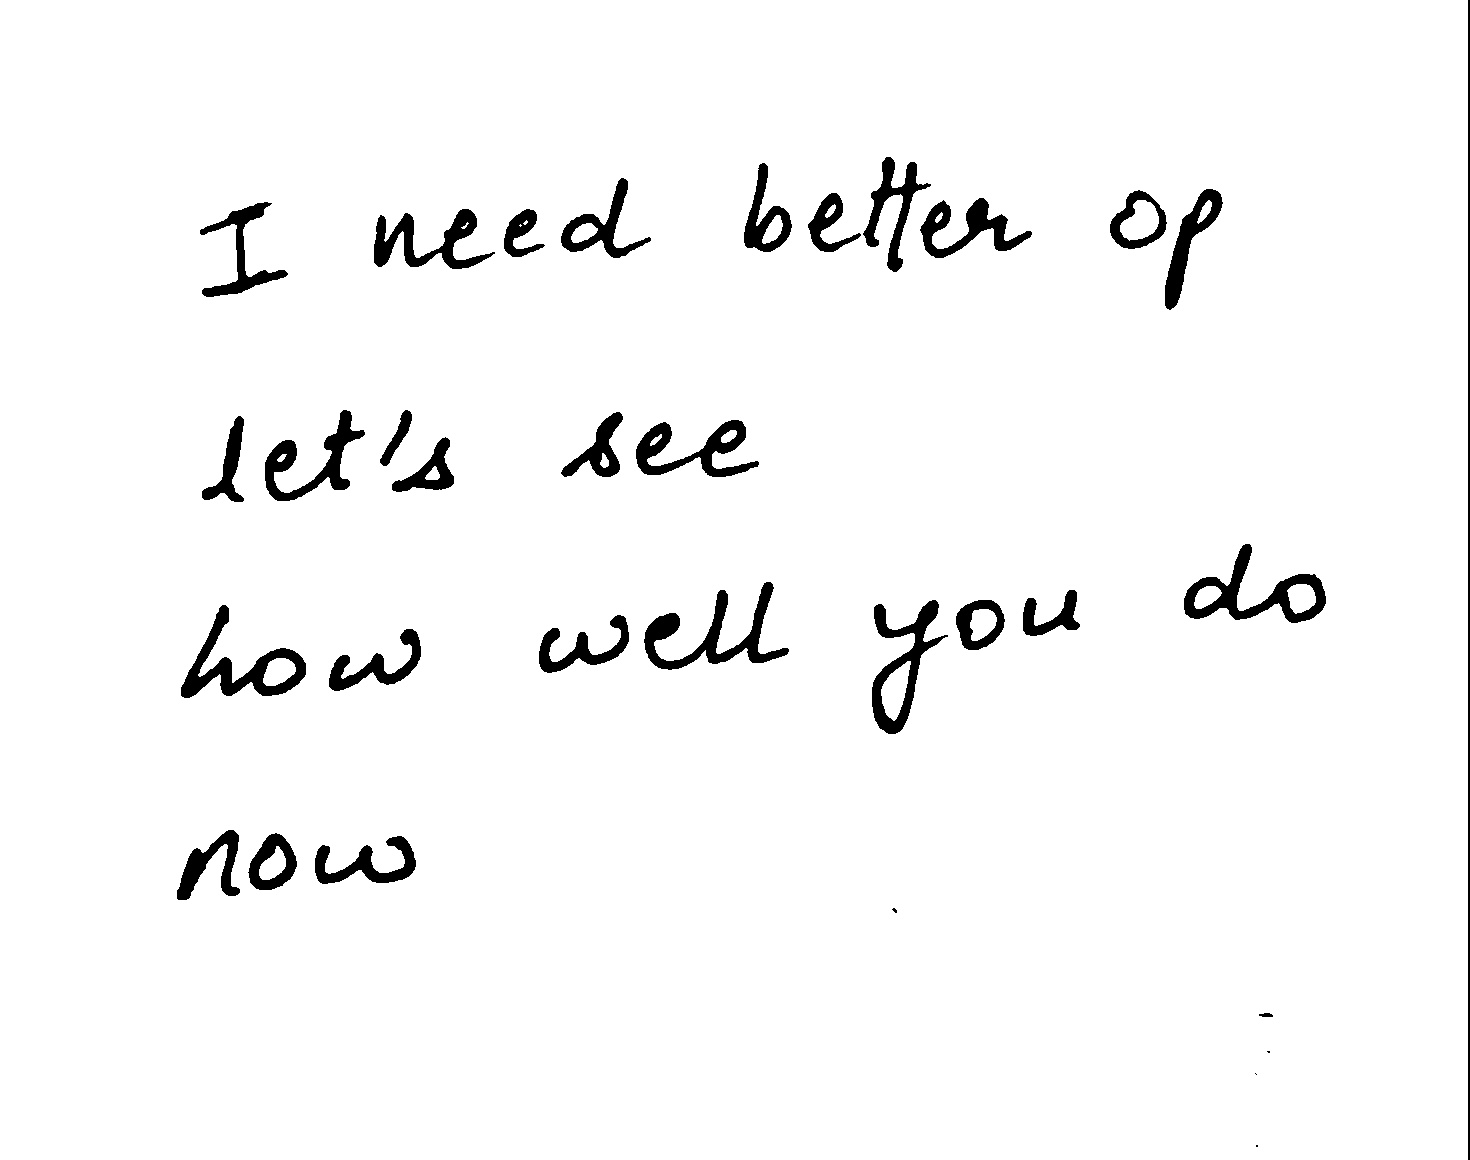 I need better op
let's see
how well you do
now